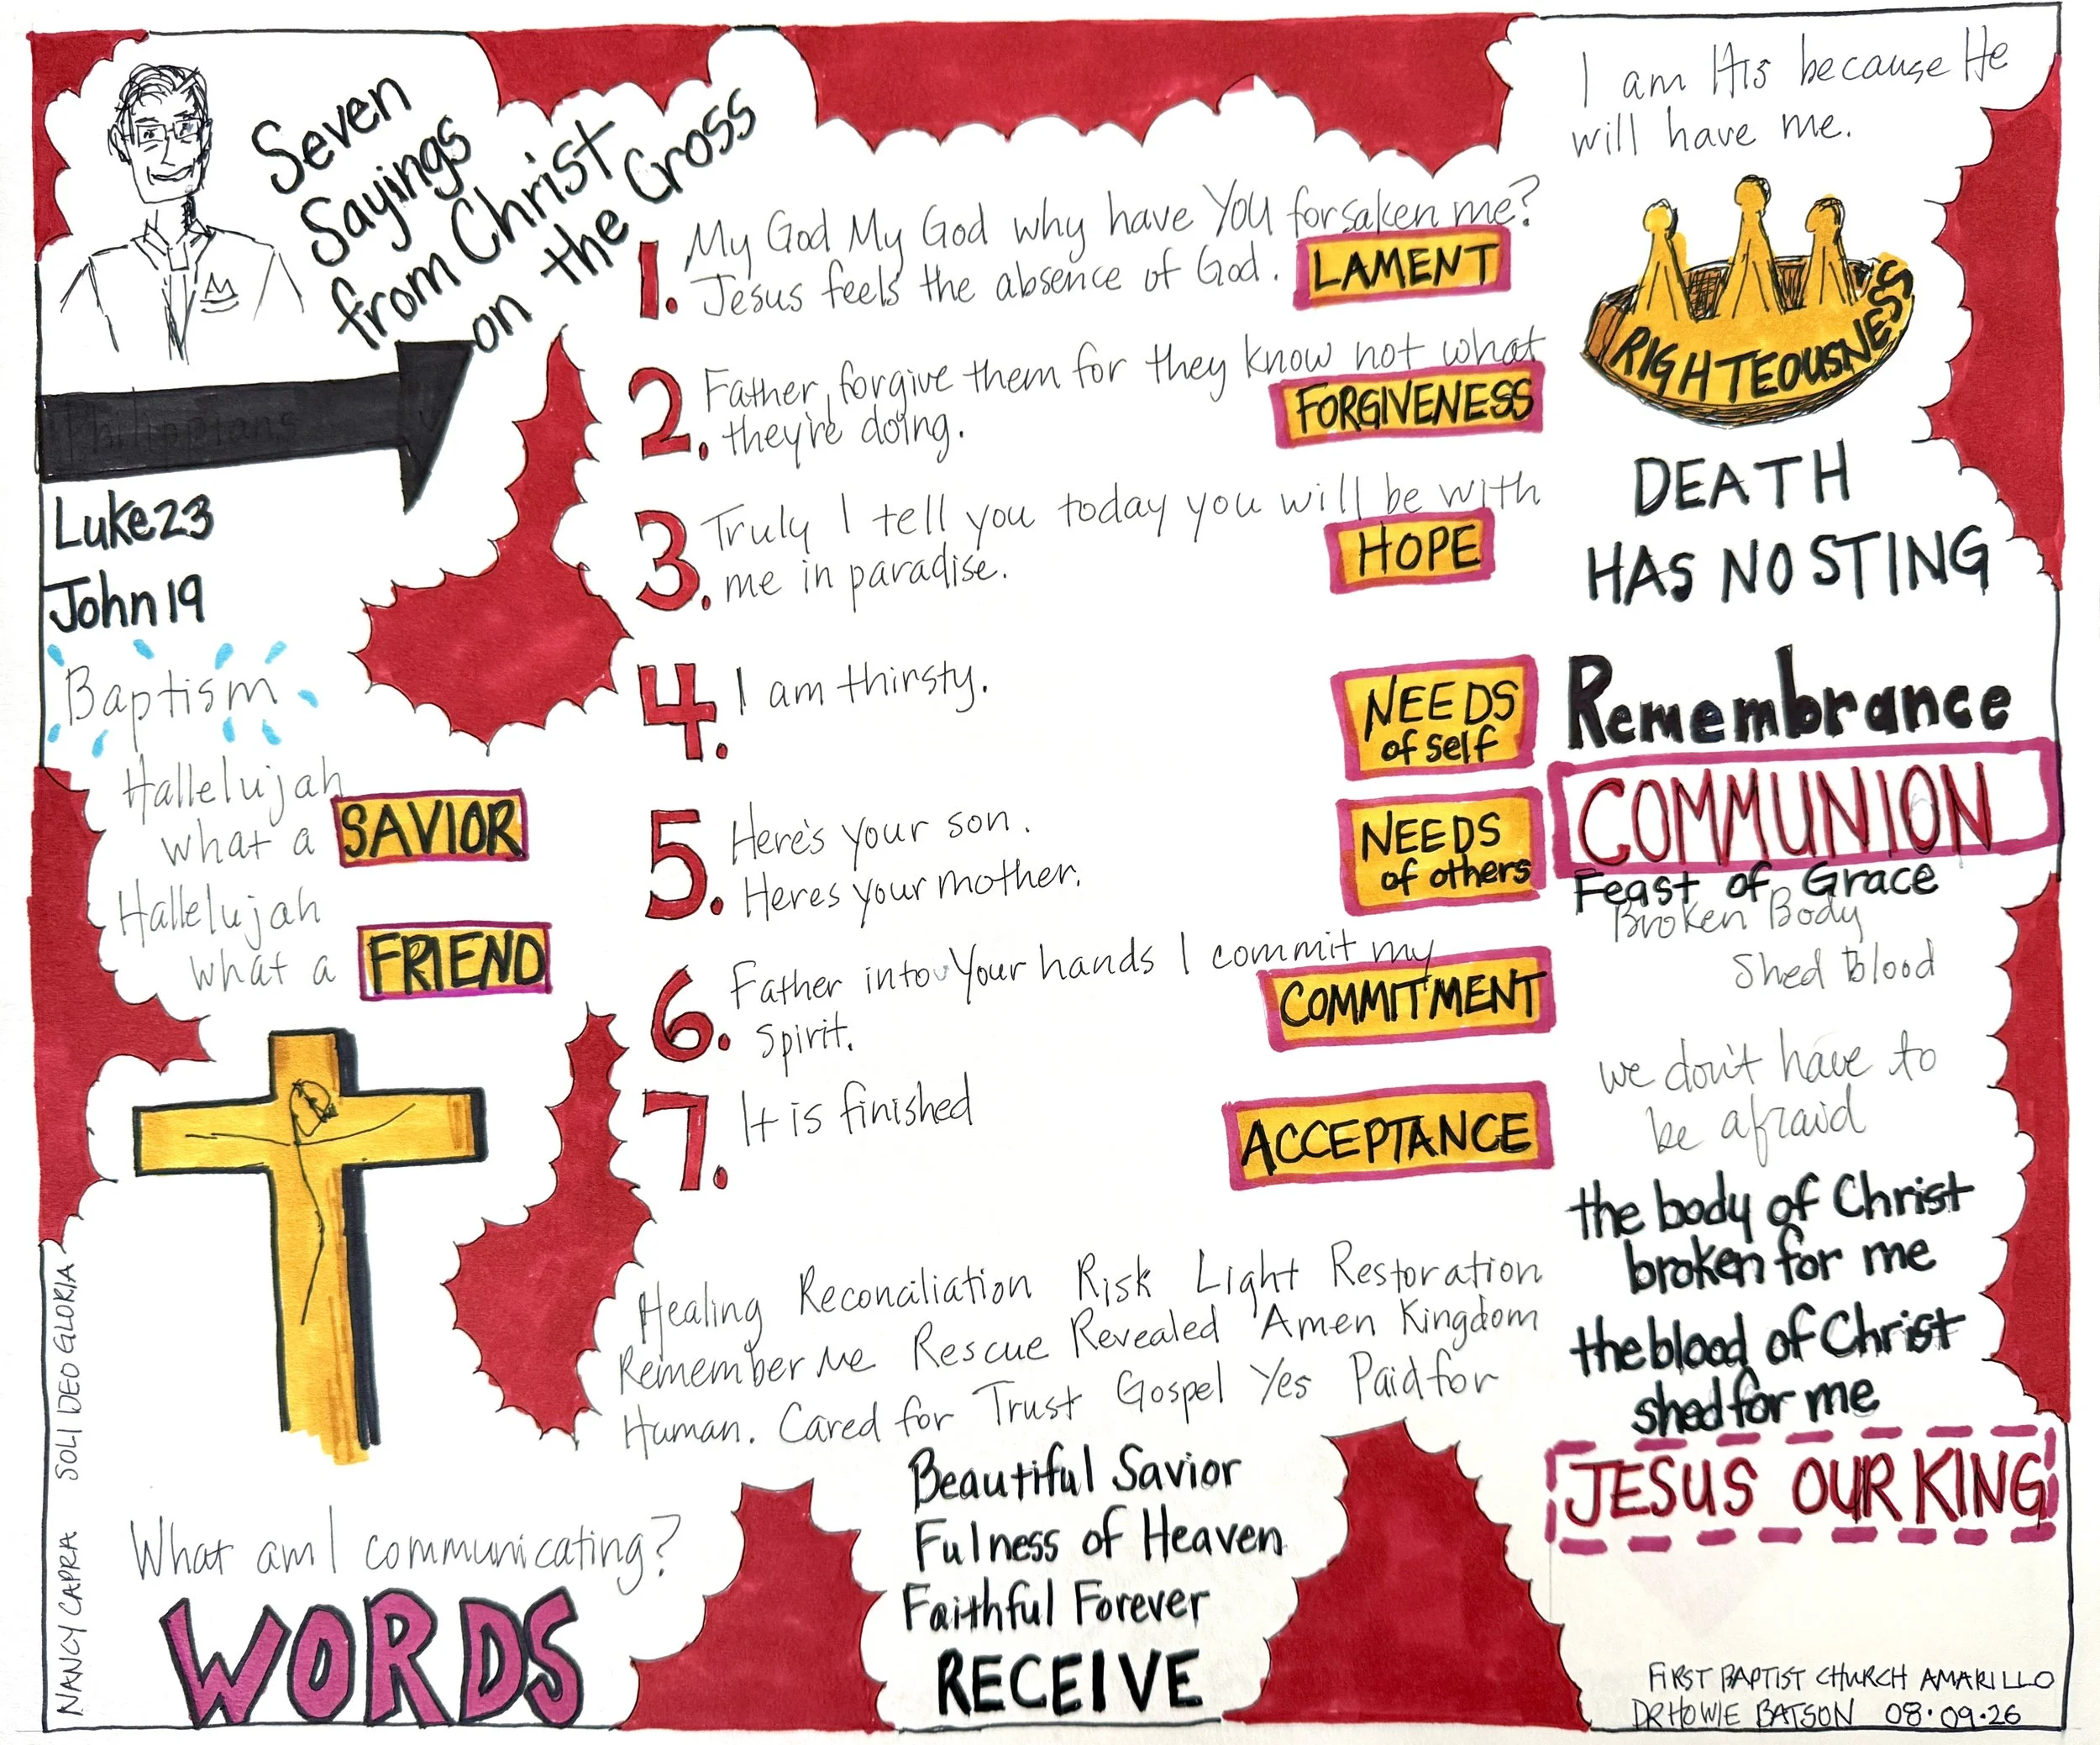 Seven
Sayings
from Christ
on the Cross
Philippians
Luke 23
John 19
Baptism
Hallelujah
what a SAVIOR
Hallelujah
what a FRIEND
SOLI DEO GLORIA
NANCY CAPRA
What am I communicating?
WORDS
1. My God My God why have You forsaken me?
Jesus feels the absence of God. LAMENT
2. Father, forgive them for they know not what
they're doing. FORGIVENESS
3. Truly I tell you today you will be with
me in paradise. HOPE
4. I am thirsty. NEEDS
of self
5. Here's your son. NEEDS
Heres your mother. of others
6. Father into Your hands I commit my
Spirit. COMMITMENT
7. It is finished ACCEPTANCE
Healing Reconciliation Risk Light Restoration
Remember Me Rescue Revealed Amen Kingdom
Human. Cared for Trust Gospel Yes Paid for
Beautiful Savior
Fulness of Heaven
Faithful Forever
RECEIVE
I am His because He
will have me.
RIGHTEOUSNESS
DEATH
HAS NO STING
Remembrance
COMMUNION
Feast of Grace
Broken Body
Shed Blood
we don't have to
be afraid
the body of Christ
broken for me
the blood of Christ
shed for me
JESUS OUR KING
FIRST BAPTIST CHURCH AMARILLO
DR HOWIE BATSON 08.09.26